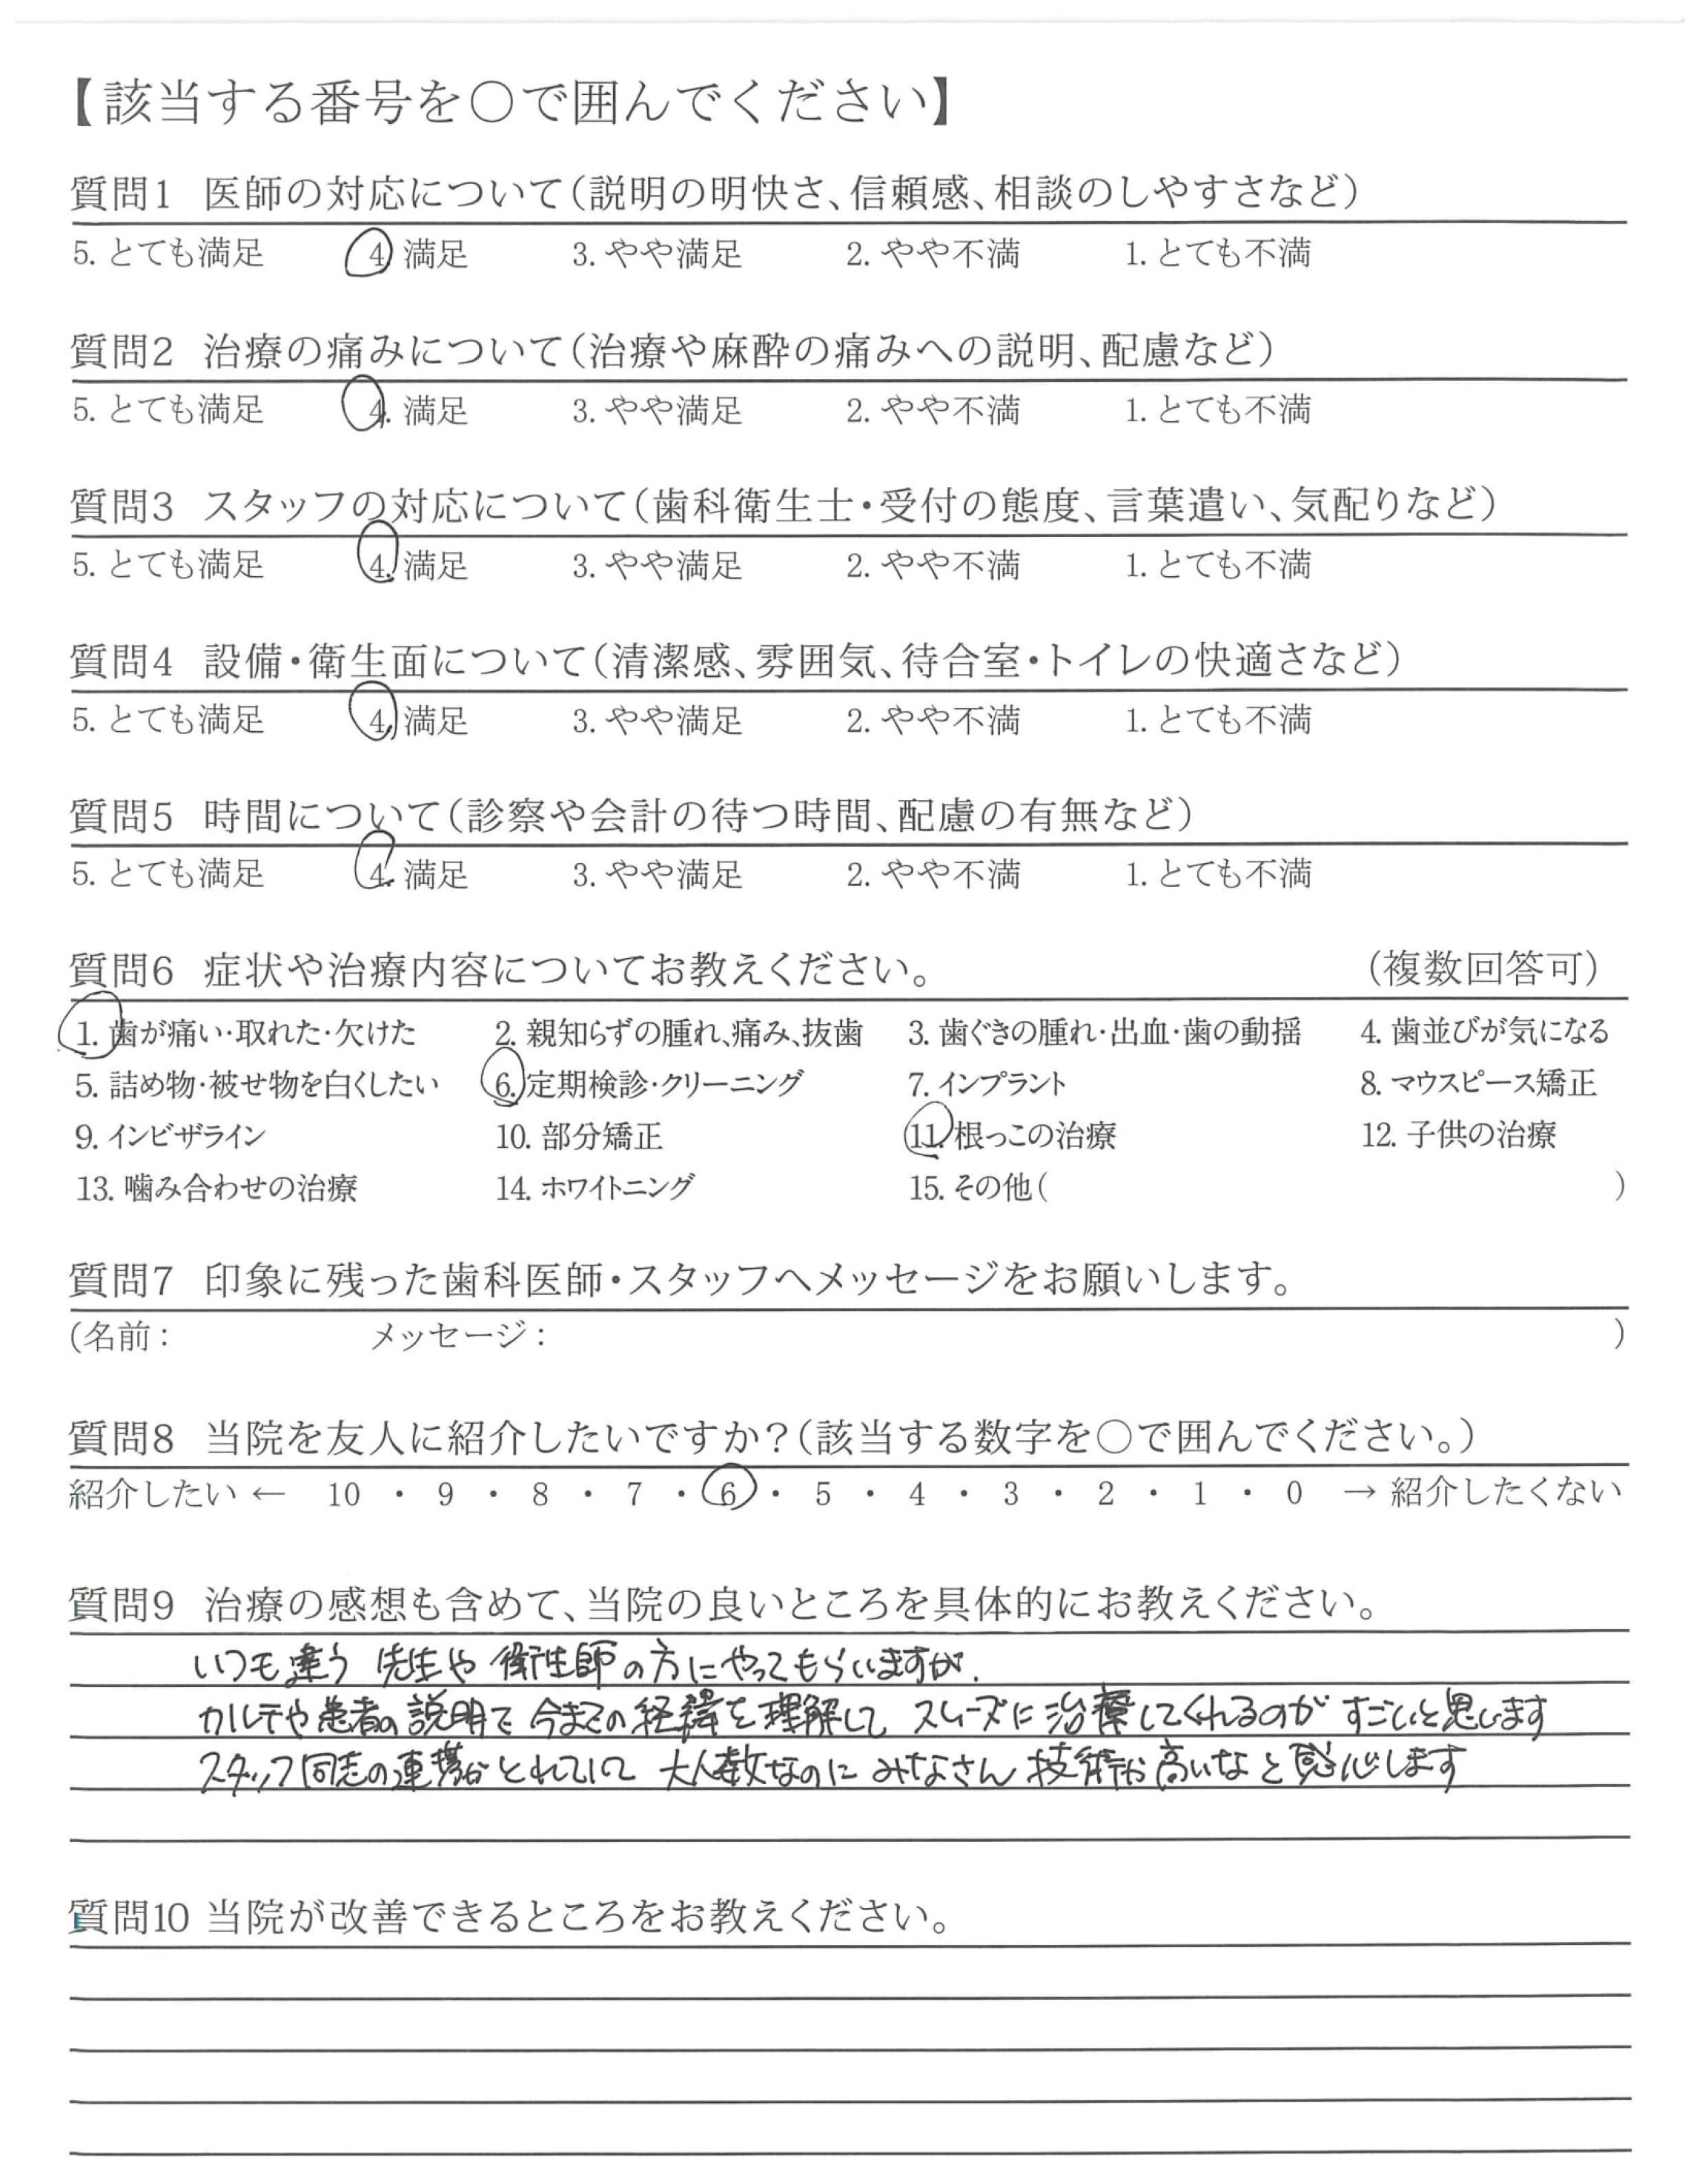 【該当する番号を〇で囲んでください】
質問1 医師の対応について(説明の明快さ、信頼感、相談のしやすさなど)
5. とても満足 4. 満足 3. やや満足 2. やや不満 1. とても不満
質問2 治療の痛みについて(治療や麻酔の痛みへの説明、配慮など)
5. とても満足 4. 満足 3. やや満足 2. やや不満 1. とても不満
質問3 スタッフの対応について(歯科衛生士・受付の態度、言葉遣い、気配りなど)
5. とても満足 4. 満足 3. やや満足 2. やや不満 1. とても不満
質問4 設備・衛生面について(清潔感、雰囲気、待合室・トイレの快適さなど)
5. とても満足 4. 満足 3. やや満足 2. やや不満 1. とても不満
質問5 時間について(診察や会計の待つ時間、配慮の有無など)
5. とても満足 4. 満足 3. やや満足 2. やや不満 1. とても不満
質問6 症状や治療内容についてお教えください。 (複数回答可)
1. 歯が痛い・取れた・欠けた 2. 親知らずの腫れ、痛み、抜歯 3. 歯ぐきの腫れ・出血・歯の動揺 4. 歯並びが気になる
5. 詰め物・被せ物を白くしたい 6. 定期検診・クリーニング 7. インプラント 8. マウスピース矯正
9. インビザライン 10. 部分矯正 11. 根っこの治療 12. 子供の治療
13. 噛み合わせの治療 14. ホワイトニング 15. その他( )
質問7 印象に残った歯科医師・スタッフへメッセージをお願いします。
(名前: メッセージ: )
質問8 当院を友人に紹介したいですか?(該当する数字を〇で囲んでください。)
紹介したい ← 10 ・ 9 ・ 8 ・ 7 ・ 6 ・ 5 ・ 4 ・ 3 ・ 2 ・ 1 ・ 0 → 紹介したくない
質問9 治療の感想も含めて、当院の良いところを具体的にお教えください。
いつも違う 先生や 衛生師の方にやってもらいますが、
カルテや患者の説明で 今までの経緯を理解して スムーズに治療してくれるのが すごいと思います
スタッフ同志の連携がとれていて 大人数なのに みなさん 技術が高いなと感心します
質問10 当院が改善できるところをお教えください。